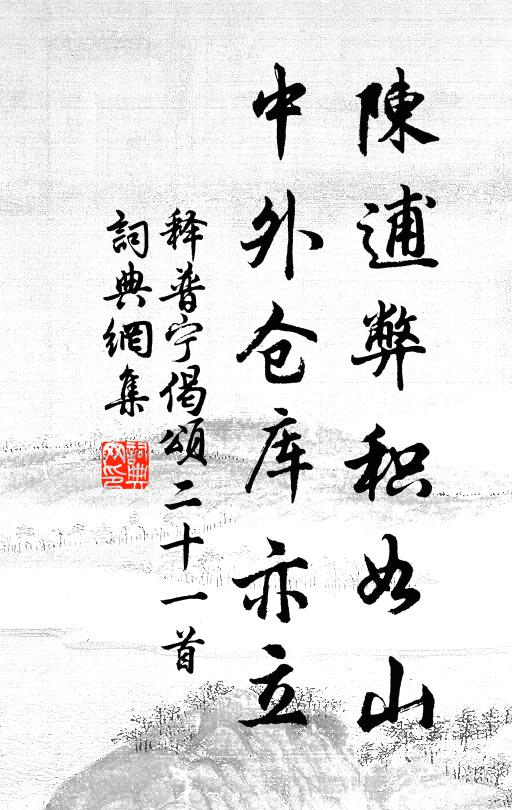 陳逋弊积如山
中外仓库亦立
释普宁偈頌二十一首
詞典網集